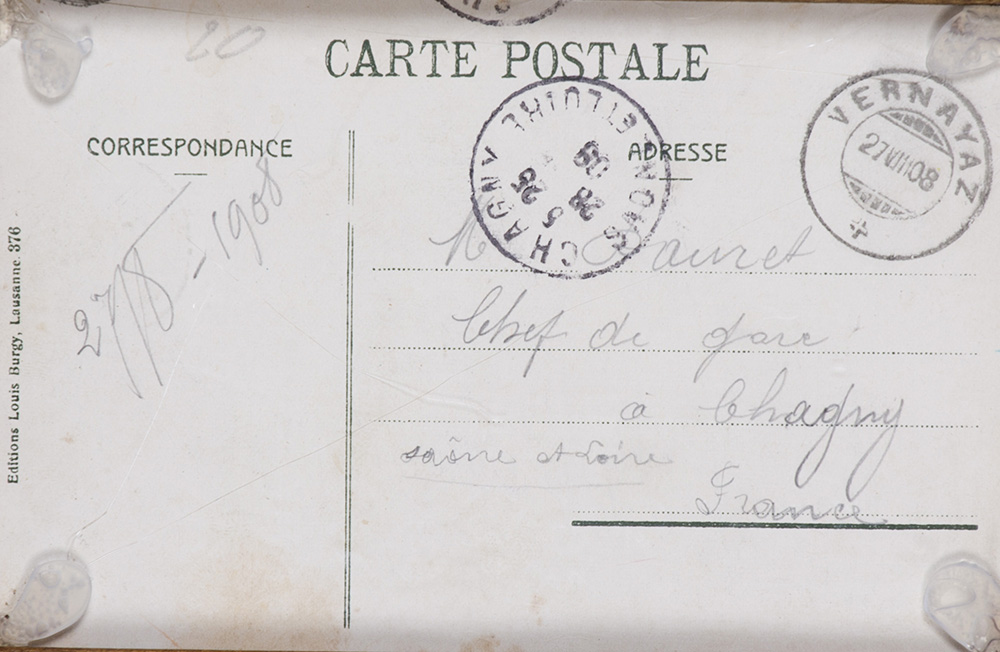 20
CARTE POSTALE
CORRESPONDANCE
ADRESSE
27/8 - 1908
Editions Louis Burgy, Lausanne. 376
CHAGNY SAONE-ET-LOIRE
5 25
28
08
VERNAYAZ
27 VIII 08
Chef de gare
à Chagny
Saône et Loire
France